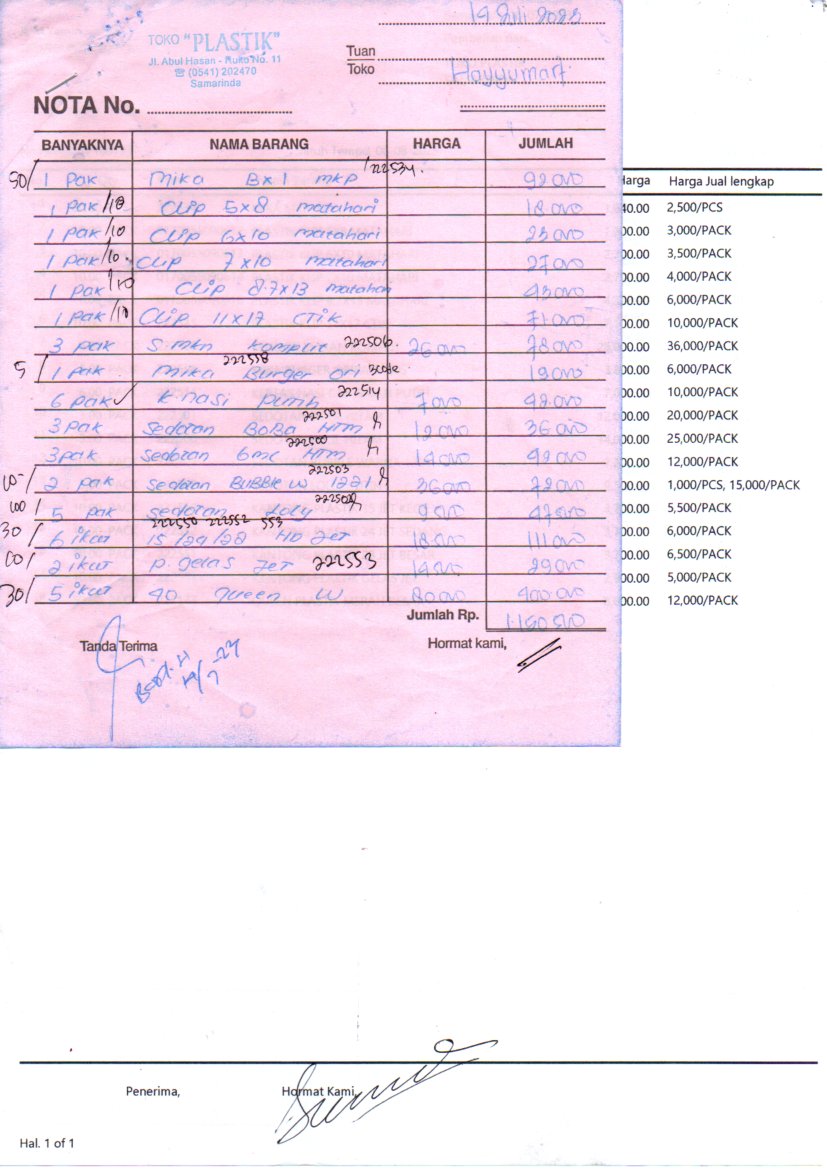 19 Juli 2023
TOKO "PLASTIK"
Jl. Abul Hasan - Ruko No. 11
☎ (0541) 202470
Samarinda
Tuan
Toko
Hayyumart
NOTA No.
BANYAKNYA NAMA BARANG HARGA JUMLAH
50/ 1 pak Mika Bx1 mkp /222534. 92.000
1 pak /10 Clip 5x8 matahari 18.000
1 pak /10 Clip 6x10 matahari 23.000
1 pak /10. Clip 7x10 matahari 27.000
1 pak /10 Clip 8.7x13 matahari 43.000
1 pak /10 Clip 11x17 CTIK 71.000
3 pak S. mkn komplit 222506. 26.000 78.000
5/ 1 pak Mika 222558 Burger ori 19.000
6 pak ✓ K. nasi putih 222514 7.000 42.000
3 pak Sedotan BoBa HTM 222501 12.000 36.000
3 pak Sedotan 6mc HTM 222500 14.000 42.000
2 pak Sedotan BUBBLE W 1221 222503 36.000 72.000
100/ 5 pak Sedotan Loly 9.000
30/ 6 ikat 15/24/28 HD Jet 222550 222552 553 111.000
100/ 2 ikat P. gelas Jet 222553 14.500 29.000
30/ 5 ikat 40 Queen W 80.000 400.000
Jumlah Rp. 1.150.500
Tanda Terima Hormat kami,
Harga Harga Jual lengkap
40.00 2,500/PCS
00.00 3,000/PACK
3,500/PACK
00.00 4,000/PACK
00.00 6,000/PACK
00.00 10,000/PACK
00.00 36,000/PACK
00.00 6,000/PACK
00.00 10,000/PACK
00.00 20,000/PACK
00.00 25,000/PACK
00.00 12,000/PACK
00.00 1,000/PCS, 15,000/PACK
00.00 5,500/PACK
00.00 6,000/PACK
00.00 6,500/PACK
00.00 5,000/PACK
00.00 12,000/PACK
Penerima, Hormat Kami,
Hal. 1 of 1